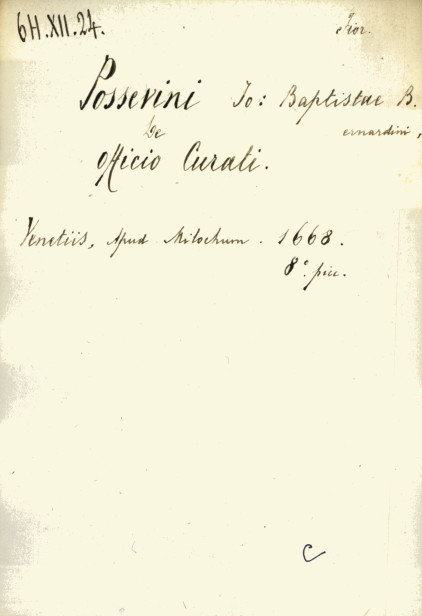 6H.XII.24.
Fior.
Possevini Io: Baptistae B.
ernardini,
De
officio Curati.
Venetiis, Apud Milochum. 1668.
8.° picc.
C